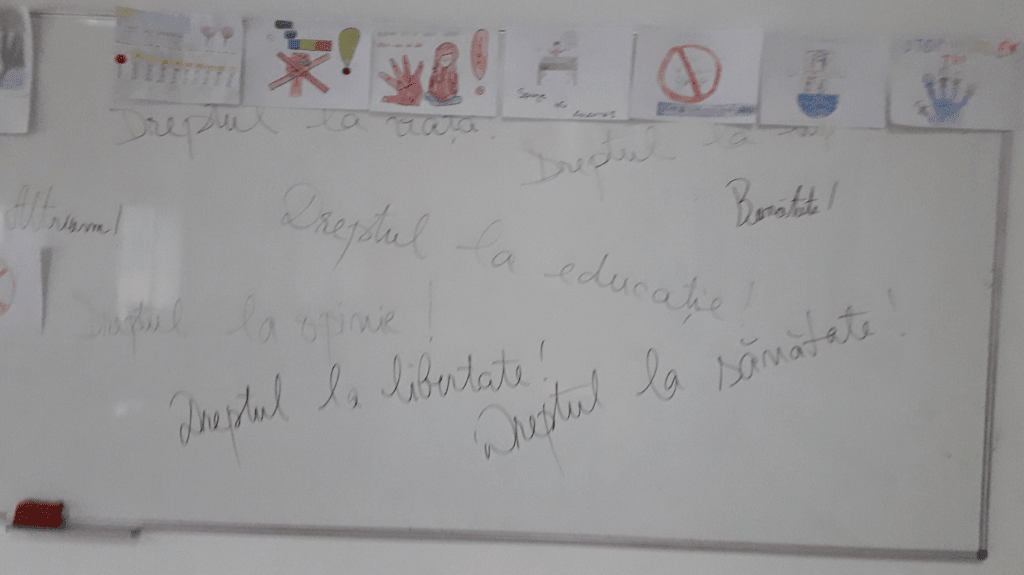 STOP
Dreptul la viață!
Dreptul la
Altruism!
Bunătate!
Dreptul la educație!
Dreptul la opinie!
Dreptul la libertate!
Dreptul la sănătate!